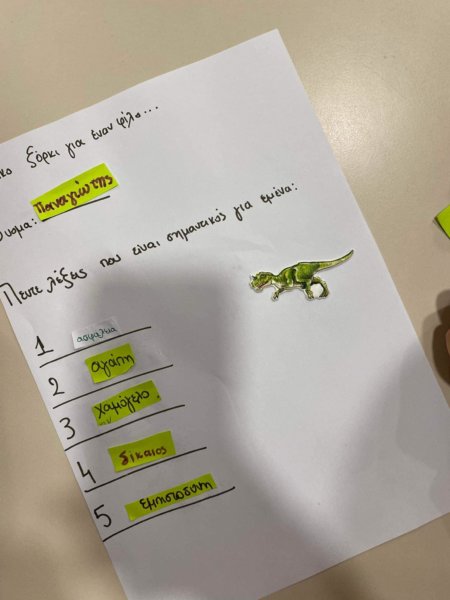 κο ξόρκι για έναν φίλο...
νομα: Παναγιώτης
Πέντε λέξεις που είναι σημαντικός για εμένα:
1 ασφαλεια
2 αγάπη
3 χαμόγελο.
4 δίκαιος
5 εμπιστοσύνη